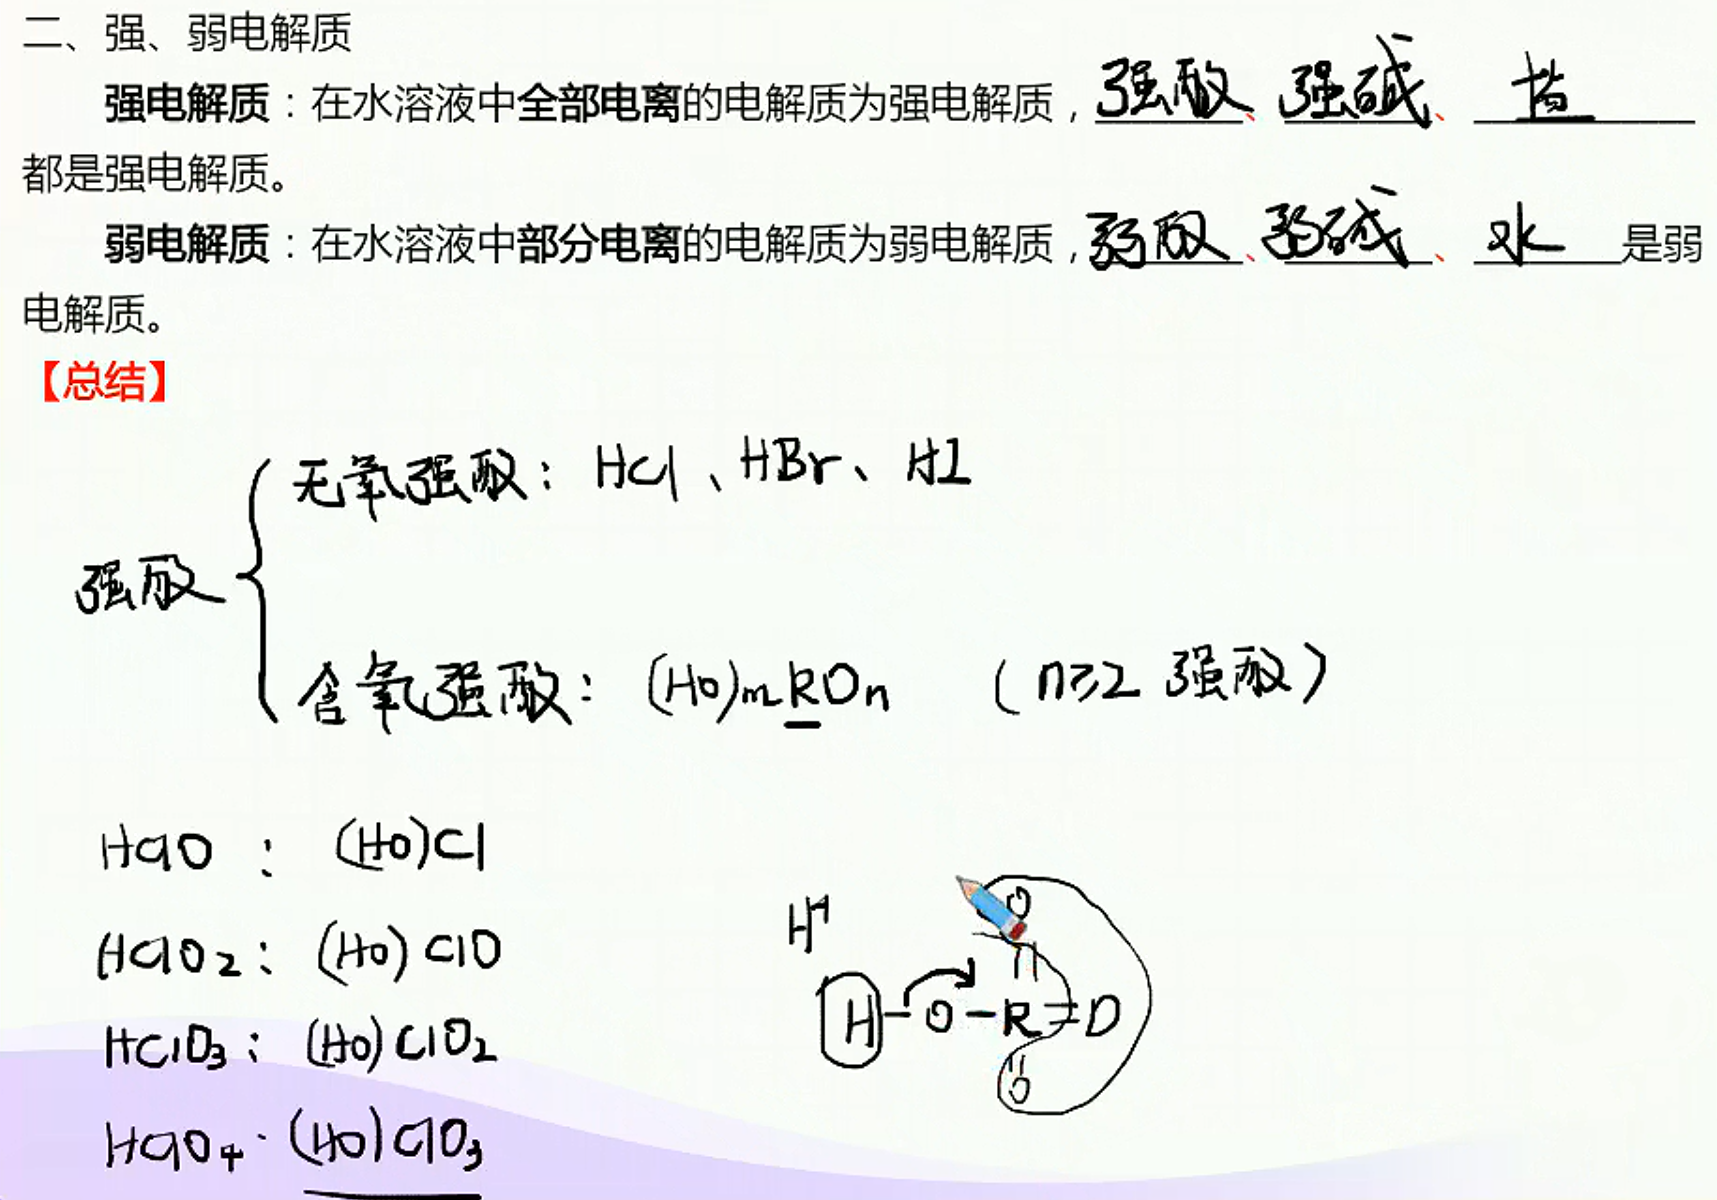 二、强、弱电解质
强电解质：在水溶液中全部电离的电解质为强电解质，强酸、强碱、盐
都是强电解质。
弱电解质：在水溶液中部分电离的电解质为弱电解质，弱酸、弱碱、水是弱
电解质。
【总结】
无氧强酸：HCl、HBr、HI
强酸
含氧强酸：(HO)mROn （n≥2 强酸）
HClO：(HO)Cl
HClO2：(HO)ClO
HClO3：(HO)ClO2
HClO4：(HO)ClO3
O
H+
H-O-R=O
O